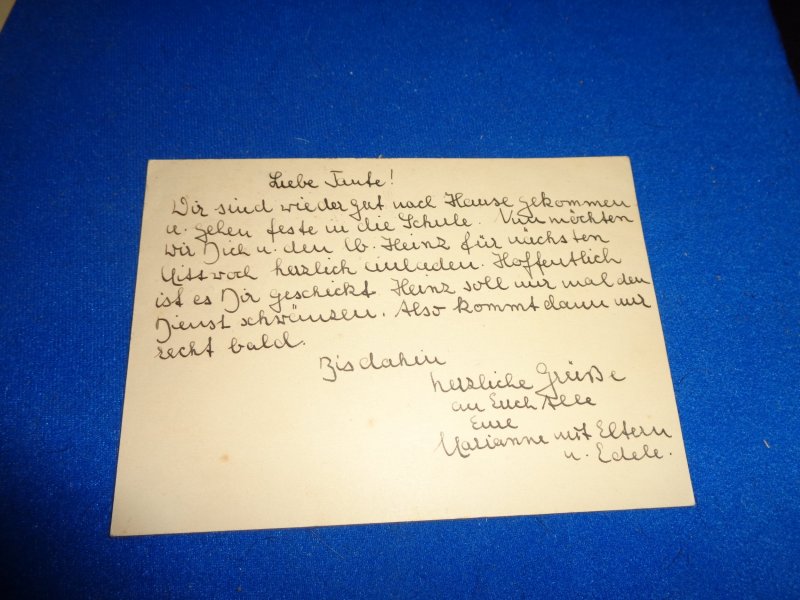 Liebe Tante!
Wir sind wieder gut nach Hause gekommen
u. gehen feste in die Schule. Nun möchten
wir Dich u. den lb. Heinz für nächsten
Mittwoch herzlich einladen. Hoffentlich
ist es Dir geschickt. Heinz soll nur mal den
Dienst schwänzen. Also kommt dann nur
recht bald.
Bis dahin
herzliche Grüße
an Euch Alle
Eure
Marianne mit Eltern
u. Edele.